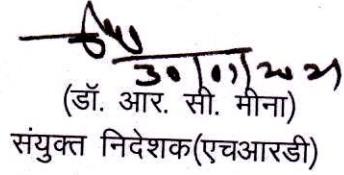 30/07/2021
(डॉ. आर. सी. मीना)
संयुक्त निदेशक(एचआरडी)